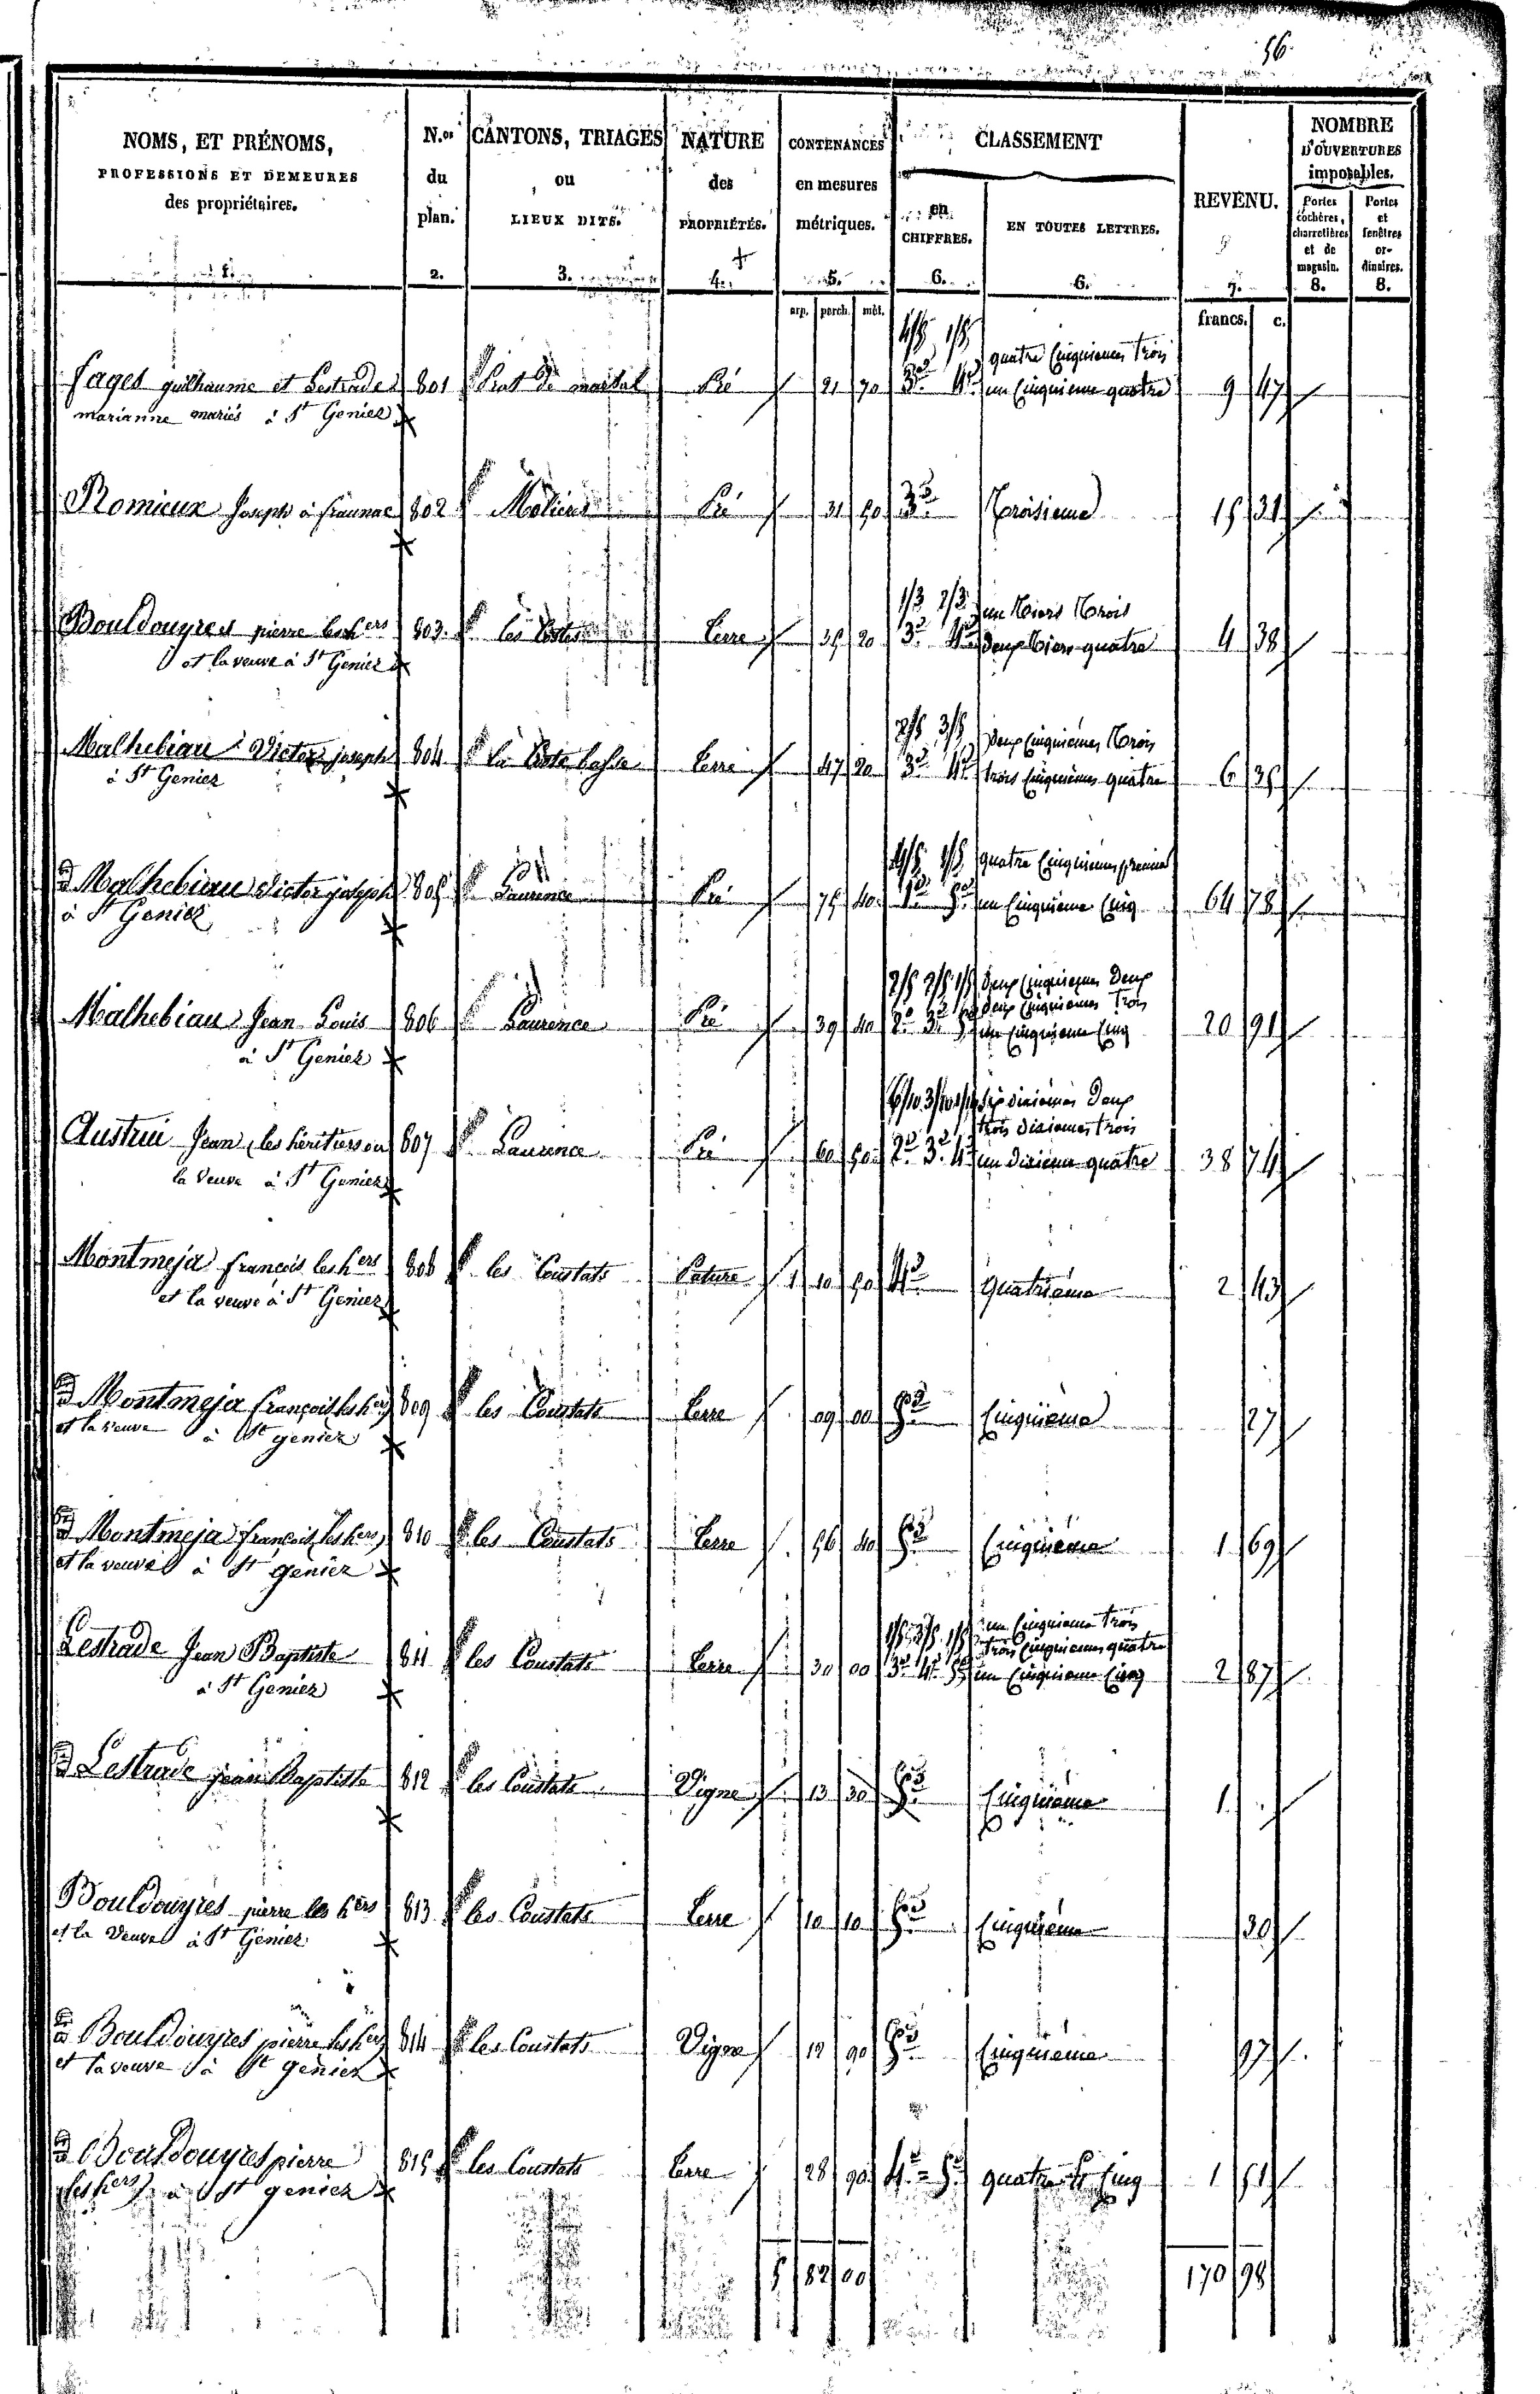 56.
NOMS, ET PRÉNOMS, PROFESSIONS ET DEMEURES des propriétaires. 1.
N.os du plan. 2.
CANTONS, TRIAGES ou LIEUX DITS. 3.
NATURE des PROPRIÉTÉS. 4.
CONTENANCES en mesures métriques. 5.
CLASSEMENT
en CHIFFRES. 6.
EN TOUTES LETTRES. 6.
REVENU. 7.
NOMBRE D'OUVERTURES imposables.
Portes cochères, charretières et de magasin. 8.
Portes et fenêtres ordinaires. 8.
arp. perch. mèt. francs. c.
fages guilhaume et Lestrade 801 Prat de martel Pré 21 70 4/5 1/5 3e 4e quatre Cinquiemes trois un Cinquieme quatre 9 47
marianne mariés à St Geniez
Romieux Joseph à fraunac 802 Pré 31 50 3e Troisieme 15 31
Bouldouyres pierre les hers 803 les Costes Terre 35 20 1/3 2/3 3e 4e un tiers trois deux tiers quatre 4 38
et la veuve à St Geniez
Malhebiau Victor joseph 804 la Coste basse Terre 47 20 2/5 3/5 3e 4e Deux Cinquiemes trois trois Cinquiemes quatre 6 35
à St Geniez
d Malhebiau Victor joseph 805 Laurence Pré 75 40 4/5 1/5 1e 5e quatre Cinquiemes premiere un Cinquieme Cinq 64 78
à St Geniez
Malhebiau Jean Louis 806 Laurence Pré 39 40 2/5 2/5 1/5 2e 3e 5e Deux Cinquiemes Deux deux Cinquiemes trois un Cinquieme Cinq 20 91
à St Geniez
Austrui Jean (les héritiers ou 807 Laurence Pré 60 50 6/10 3/10 1/10 2e 3e 4e Six dixiemes Deux trois dixiemes trois un dixieme quatre 38 74
la Veuve à St Geniez
Montmeja françois les hers 808 les Coustats Pature 1 10 50 4e quatrieme 2 43
et la veuve à St Geniez
d Montmeja françois (les hers) 809 les Coustats Terre 09 00 5e Cinquieme 27
et la veuve à St geniez
d Montmeja françois (les hers) 810 les Coustats Terre 56 40 5e Cinquieme 1 69
et la veuve à St geniez
Lestrade Jean Baptiste 811 les Coustats Terre 30 00 1/5 3/5 1/5 3e 4e 5e un Cinquieme trois trois Cinquiemes quatre un Cinquieme Cinq 2 87
à St Geniez
d Lestrade jean Baptiste 812 les Coustats Vigne 13 30 5e Cinquieme 1
Bouldouyres pierre les hers 813 les Coustats Terre 10 10 5e Cinquieme 30
et la Veuve à St Geniez
d Bouldouyres pierre les hers 814 les Coustats Vigne 12 90 5e Cinquieme 97
et la veuve à St geniez
d Bouldouyres pierre 815 les Coustats Terre 28 90 4e = 5e quatre et Cinq 1 51
(les hers) à St geniez
5 82 00 170 98